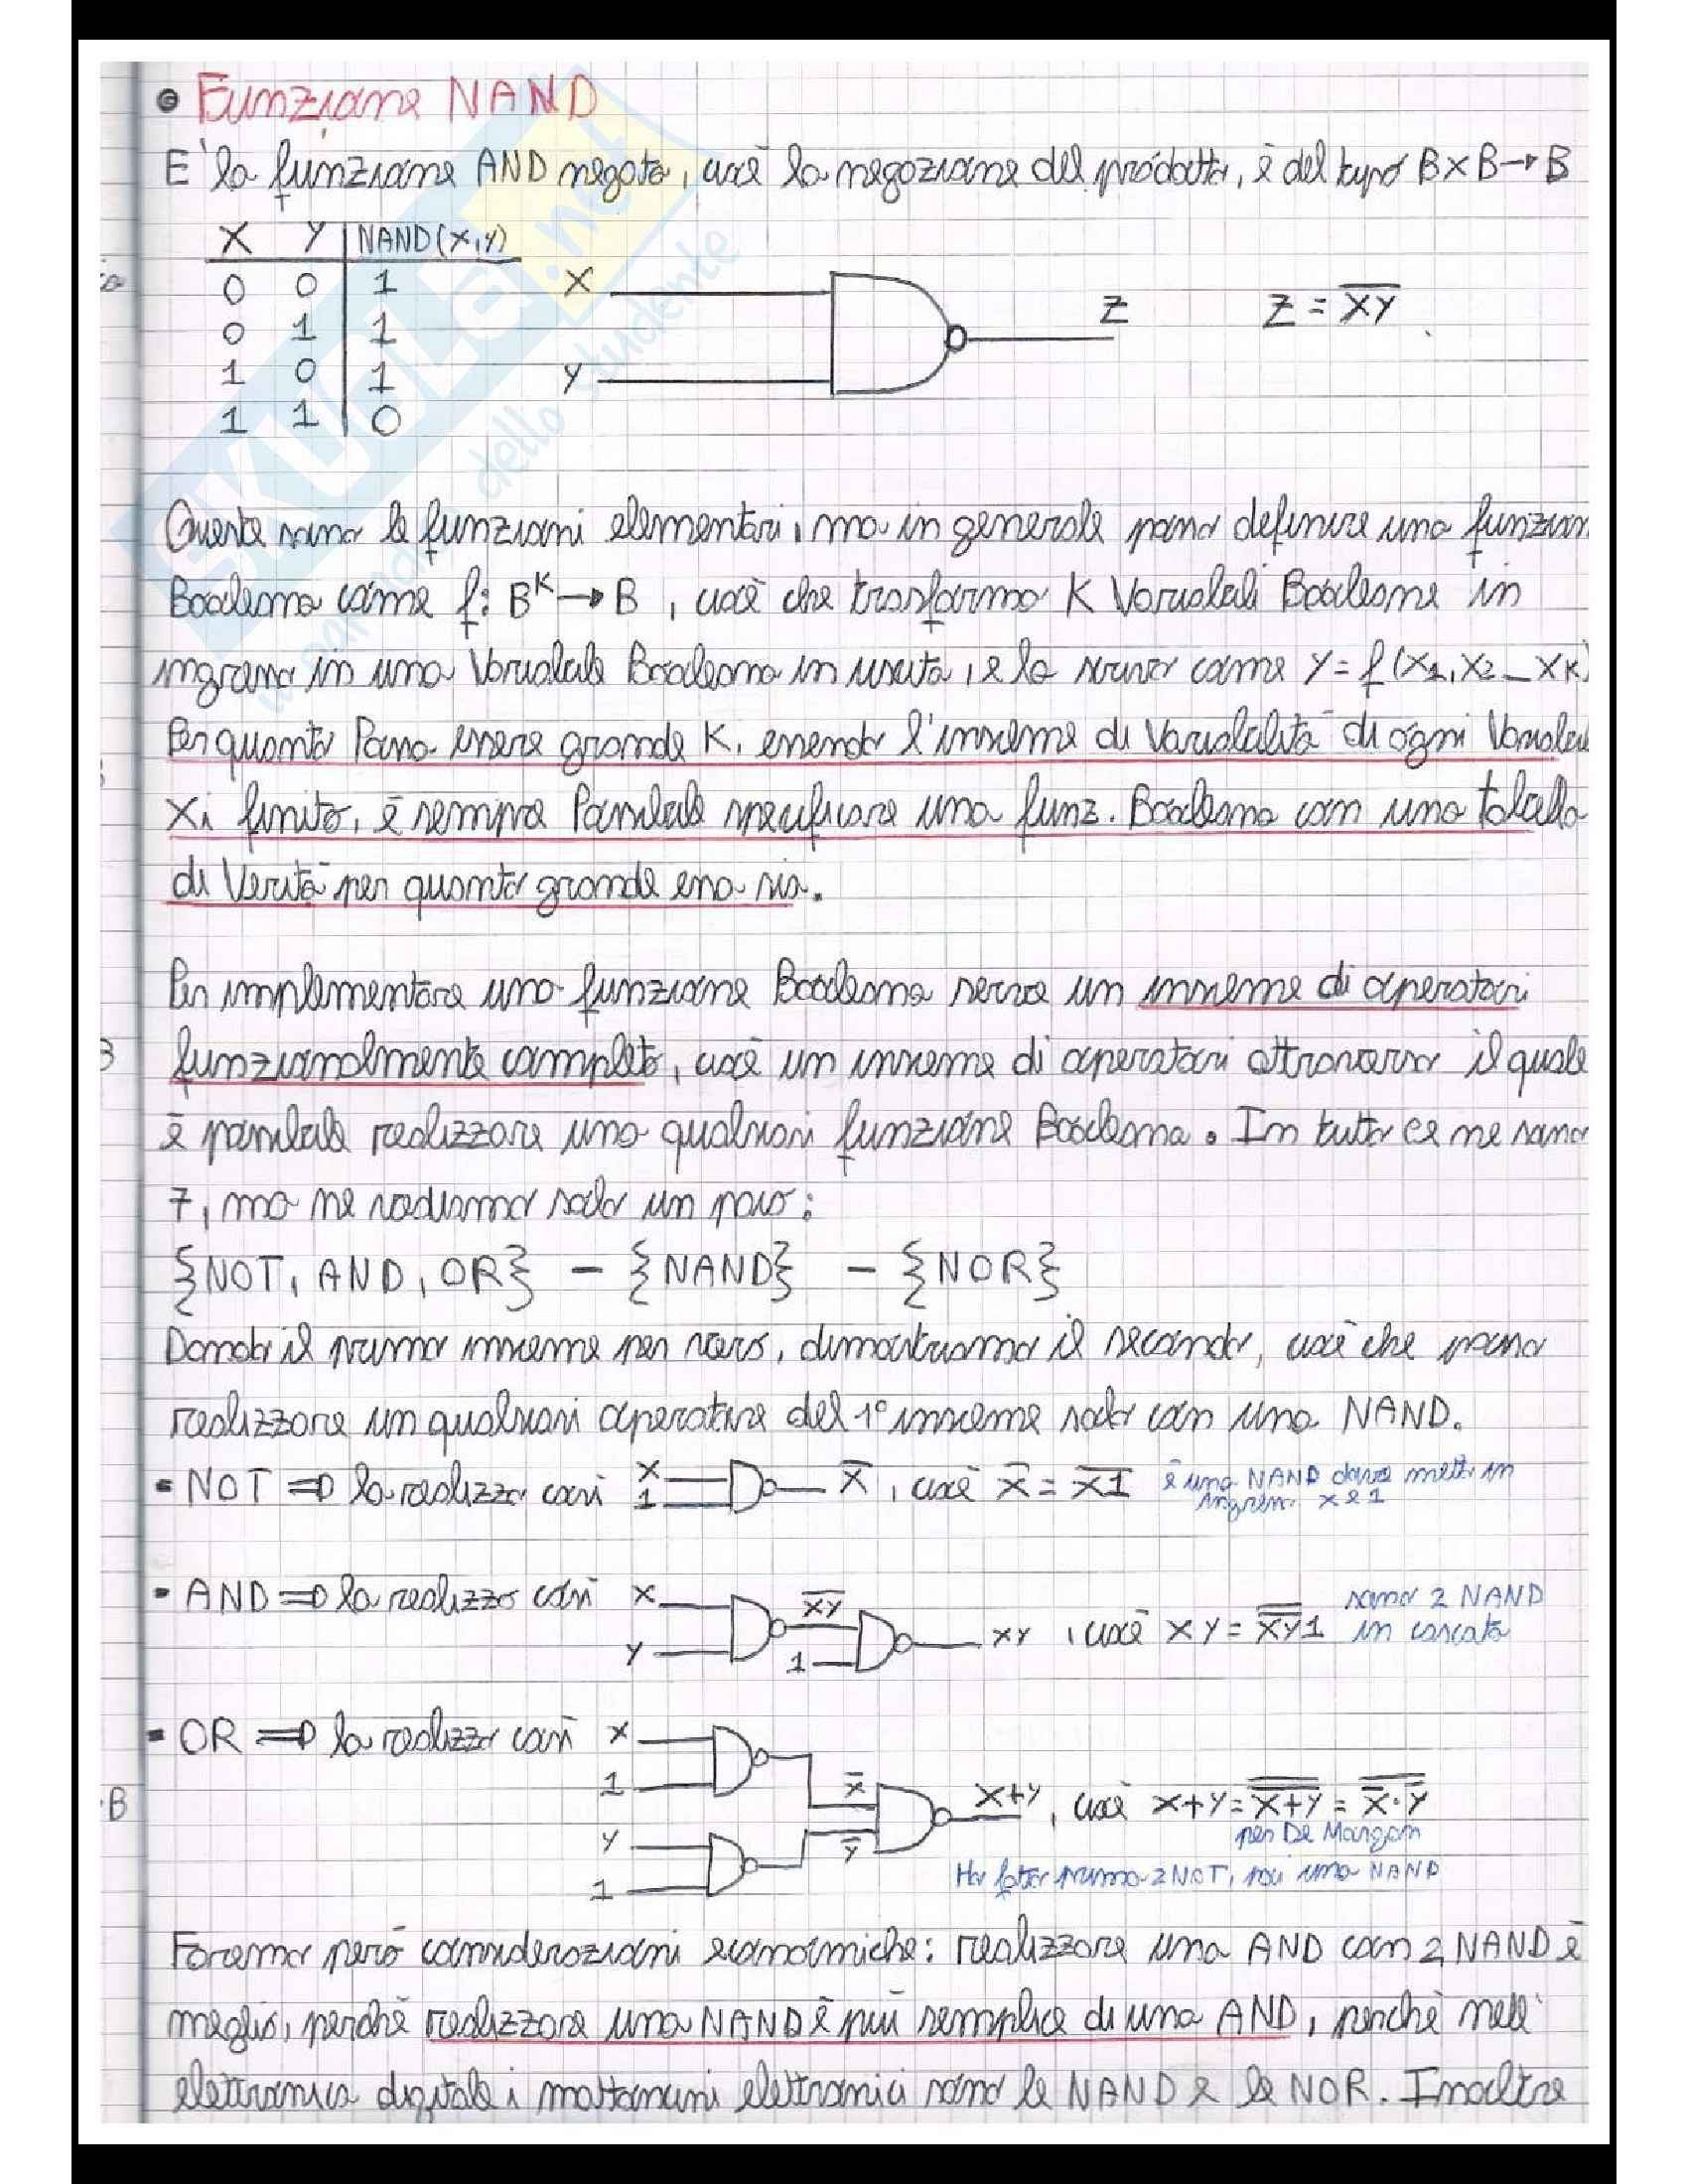 Funzione NAND
E' la funzione AND negata, cioè la negazione del prodotto, è del tipo B×B→B
X Y NAND(X,Y)
0 0 1
0 1 1
1 0 1
1 1 0
X
Y
Z
Z = \overline{XY}
Queste sono le funzioni elementari, ma in generale posso definire una funzion
Booleana come f: B^K → B , cioè che trasforma K Variabili Booleane in
ingresso in una Variabile Booleana in uscita, e la scrivo come Y = f(X1, X2 _ XK)
Per quanto Possa essere grande K, essendo l'insieme di Variabilità di ogni Variabile
Xi finito, è sempre Possibile specificare una funz. Booleana con una tabella
di Verità per quanto grande essa sia.
Per implementare una funzione Booleana serve un insieme di operatori
B
funzionalmente completo, cioè un insieme di operatori attraverso il quale
è possibile realizzare una qualsiasi funzione Booleana. In tutto ce ne sono
7, ma ne vediamo solo un paio:
{NOT, AND, OR} - {NAND} - {NOR}
Dando il primo insieme per vero, dimostriamo il secondo, cioè che posso
realizzare un qualsiasi operatore del 1° insieme solo con una NAND.
- NOT ⇒ la realizzo così X 1 \overline{X} , cioè \overline{X} = \overline{X1} è una NAND dove metti in
ingresso x e 1
- AND ⇒ la realizzo così X Y \overline{XY} 1 XY , cioè XY = \overline{\overline{XY}1} sono 2 NAND
in cascata
- OR ⇒ la realizzo così X 1 \overline{X} Y 1 \overline{Y} X+Y , cioè X+Y = \overline{\overline{X+Y}} = \overline{\overline{X}·\overline{Y}}
·B
per De Morgan
Ho fatto prima 2 NOT, poi una NAND
Faremo però considerazioni economiche: realizzare una AND con 2 NAND è
meglio, perché realizzare una NAND è più semplice di una AND, perché nell'
elettronica digitale i mattoncini elettronici sono le NAND e le NOR. Inoltre
SKUOLA.net
dello studente